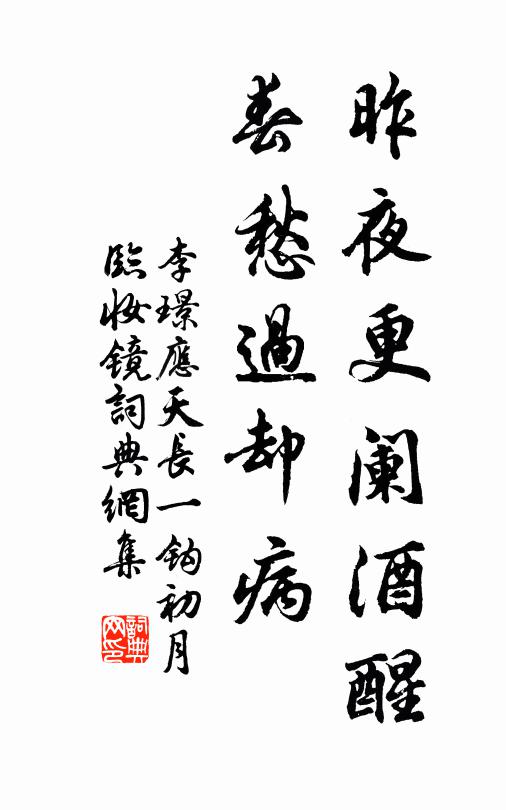 昨夜更阑酒醒
春愁過却病
李璟應天長一鈎初月
臨妝鏡詞典網集
詞典网印